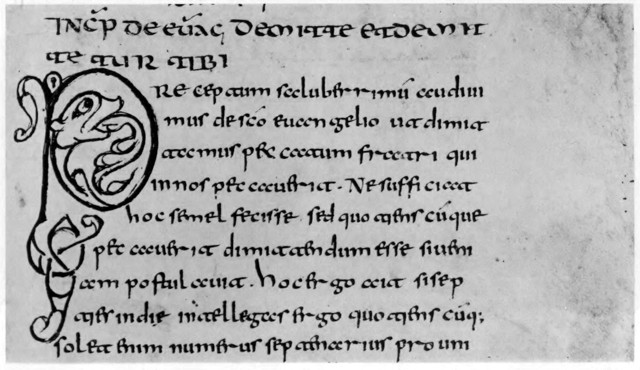 INCP DE EUAG DEMITTE ET DEMIT
TE TUR TIBI
PRECEPTUM saluberrimū audiui
mus de sc̄o euangelio ut dimit
tamus peccatum fratri qui
in nos peccauerit. Ne sufficiat
hoc semel fecisse sed quotiens cūque
peccauerit dimitendum esse si ueni
am postulauit. hoc ergo ait si sep
ties in die intelleges ergo quotiens cūq;
solet enim numerus septenarius pro uni